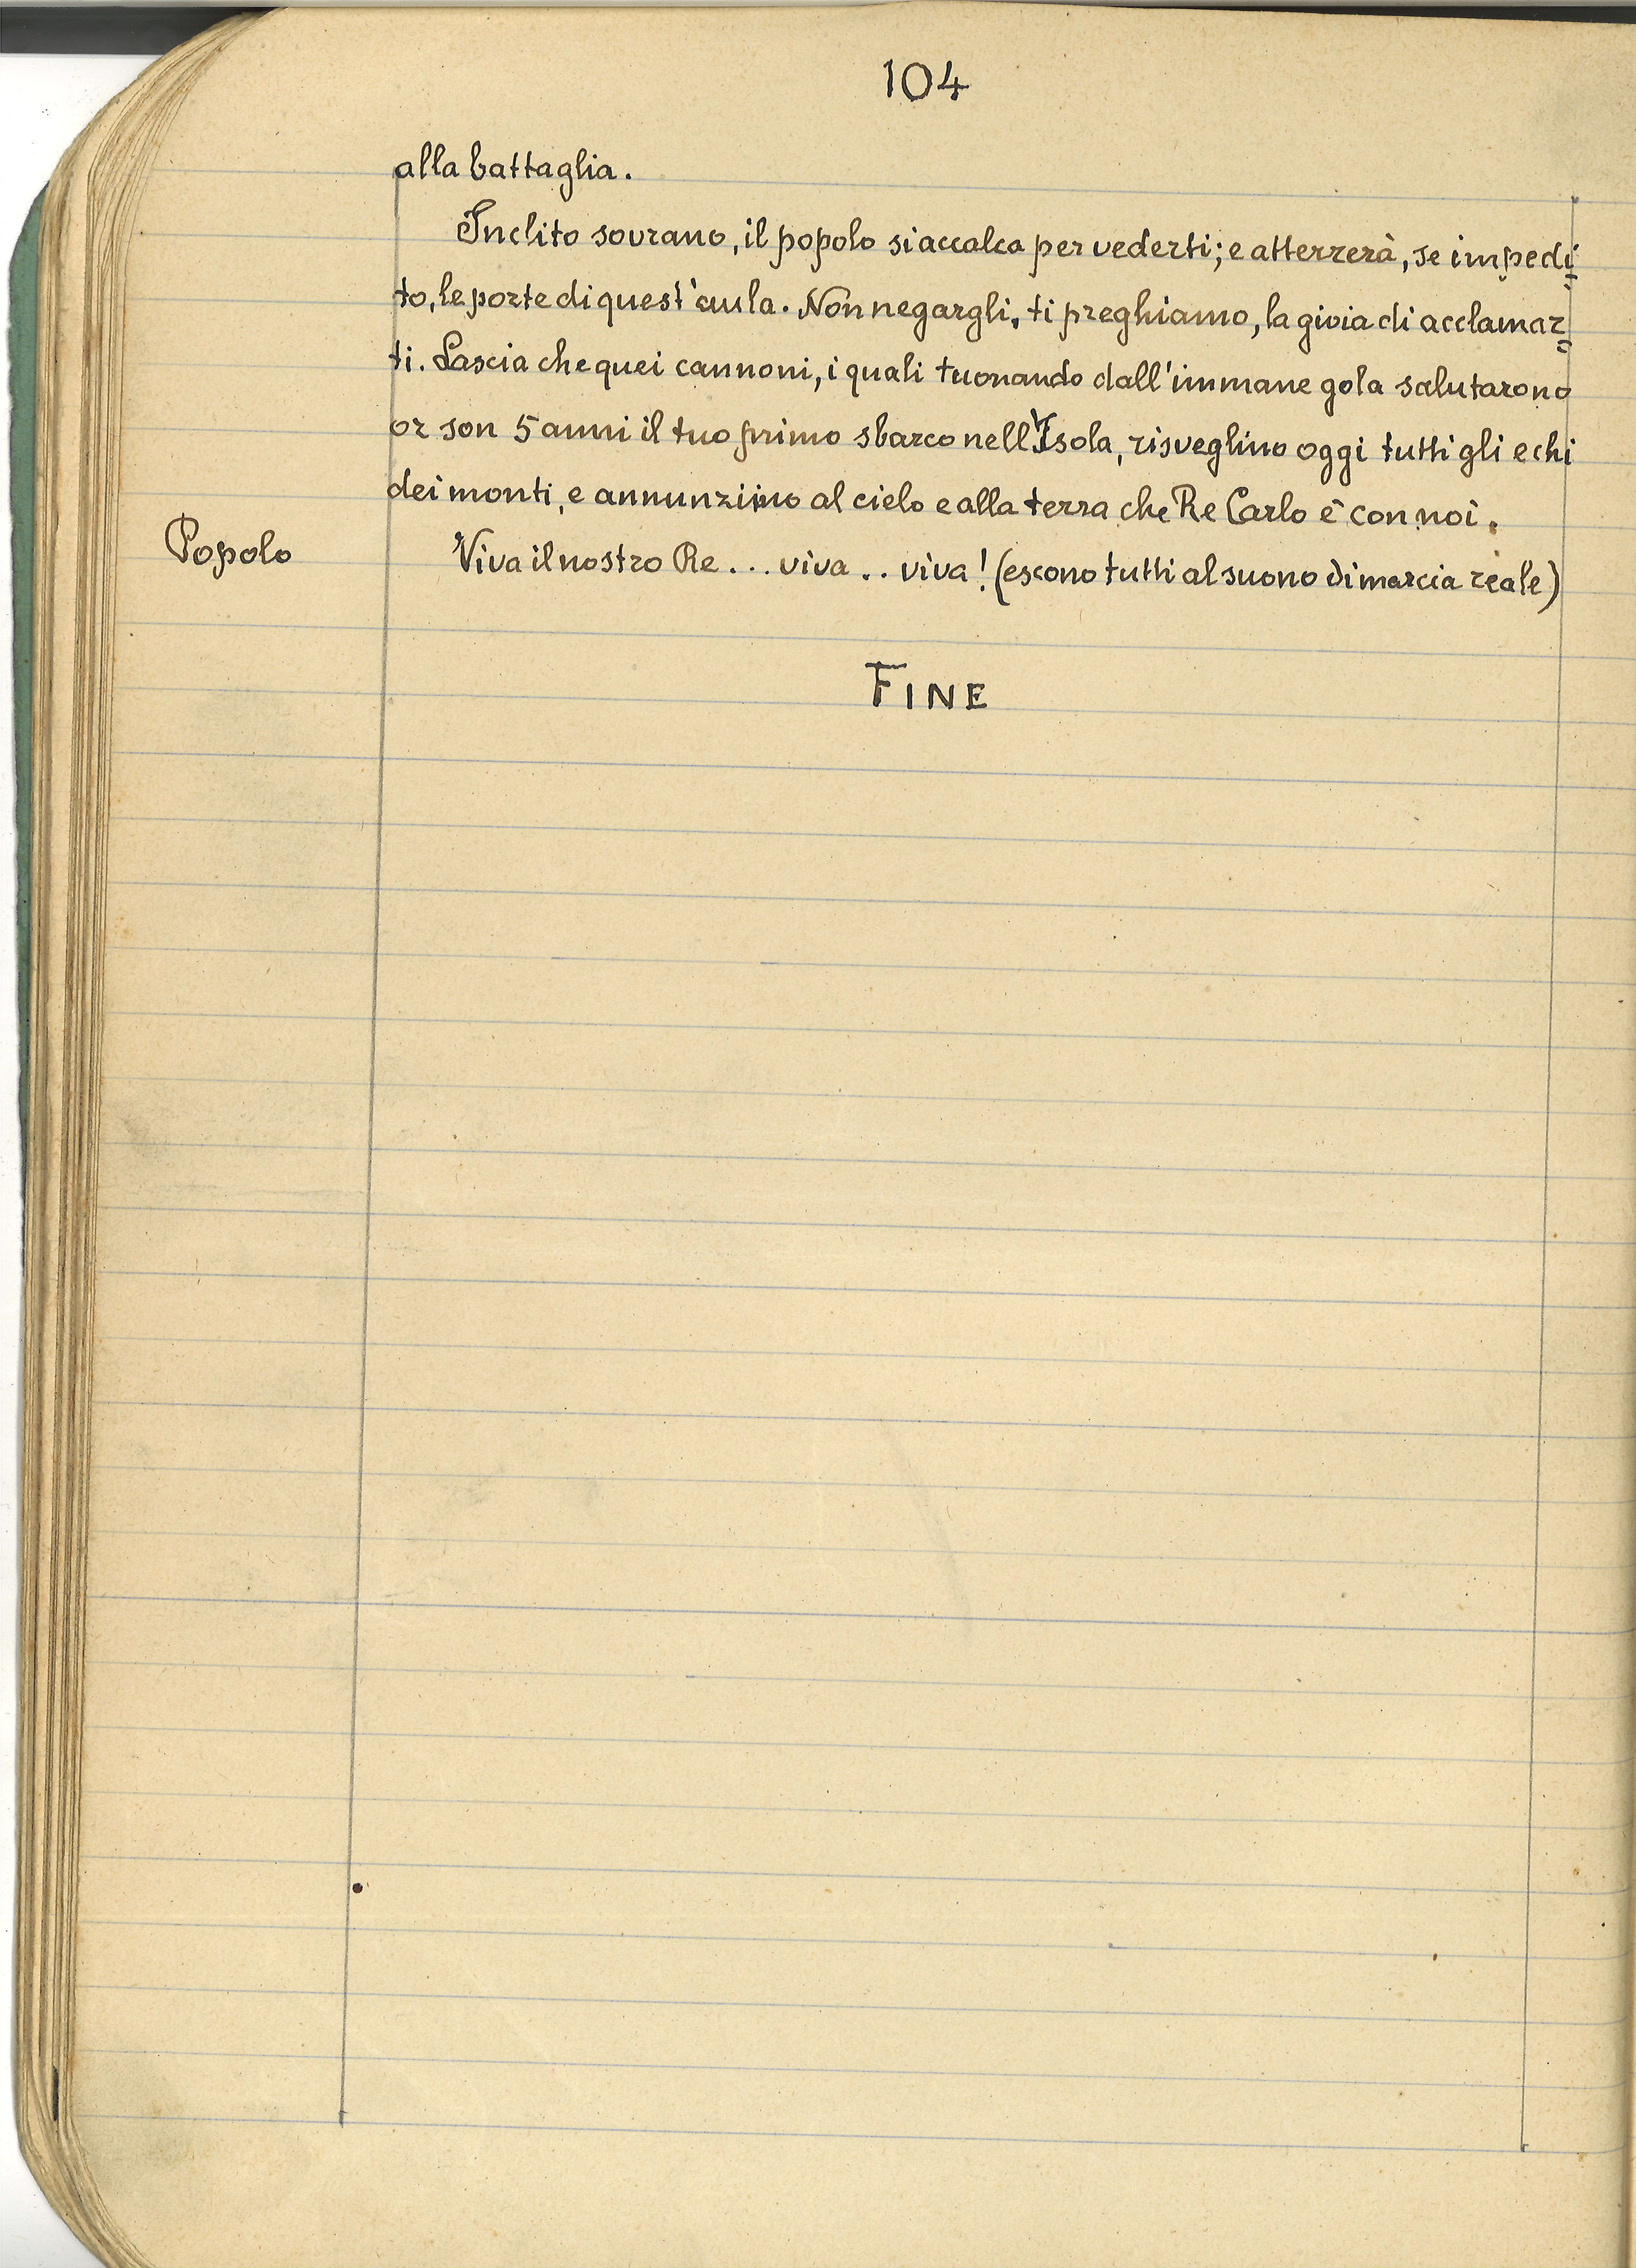 104
alla battaglia.
Inclito sovrano, il popolo si accalca per vederti; e atterrerà, se impedi=
to, le porte di quest'aula. Non negargli, ti preghiamo, la gioia di acclamar=
ti. Lascia che quei cannoni, i quali tuonando dall'immane gola salutarono
or son 5 anni il tuo primo sbarco nell'Isola, risveglino oggi tutti gli echi
dei monti, e annunziino al cielo e alla terra che Re Carlo è con noi.
Popolo Viva il nostro Re... viva.. viva! (escono tutti al suono di marcia reale)
FINE